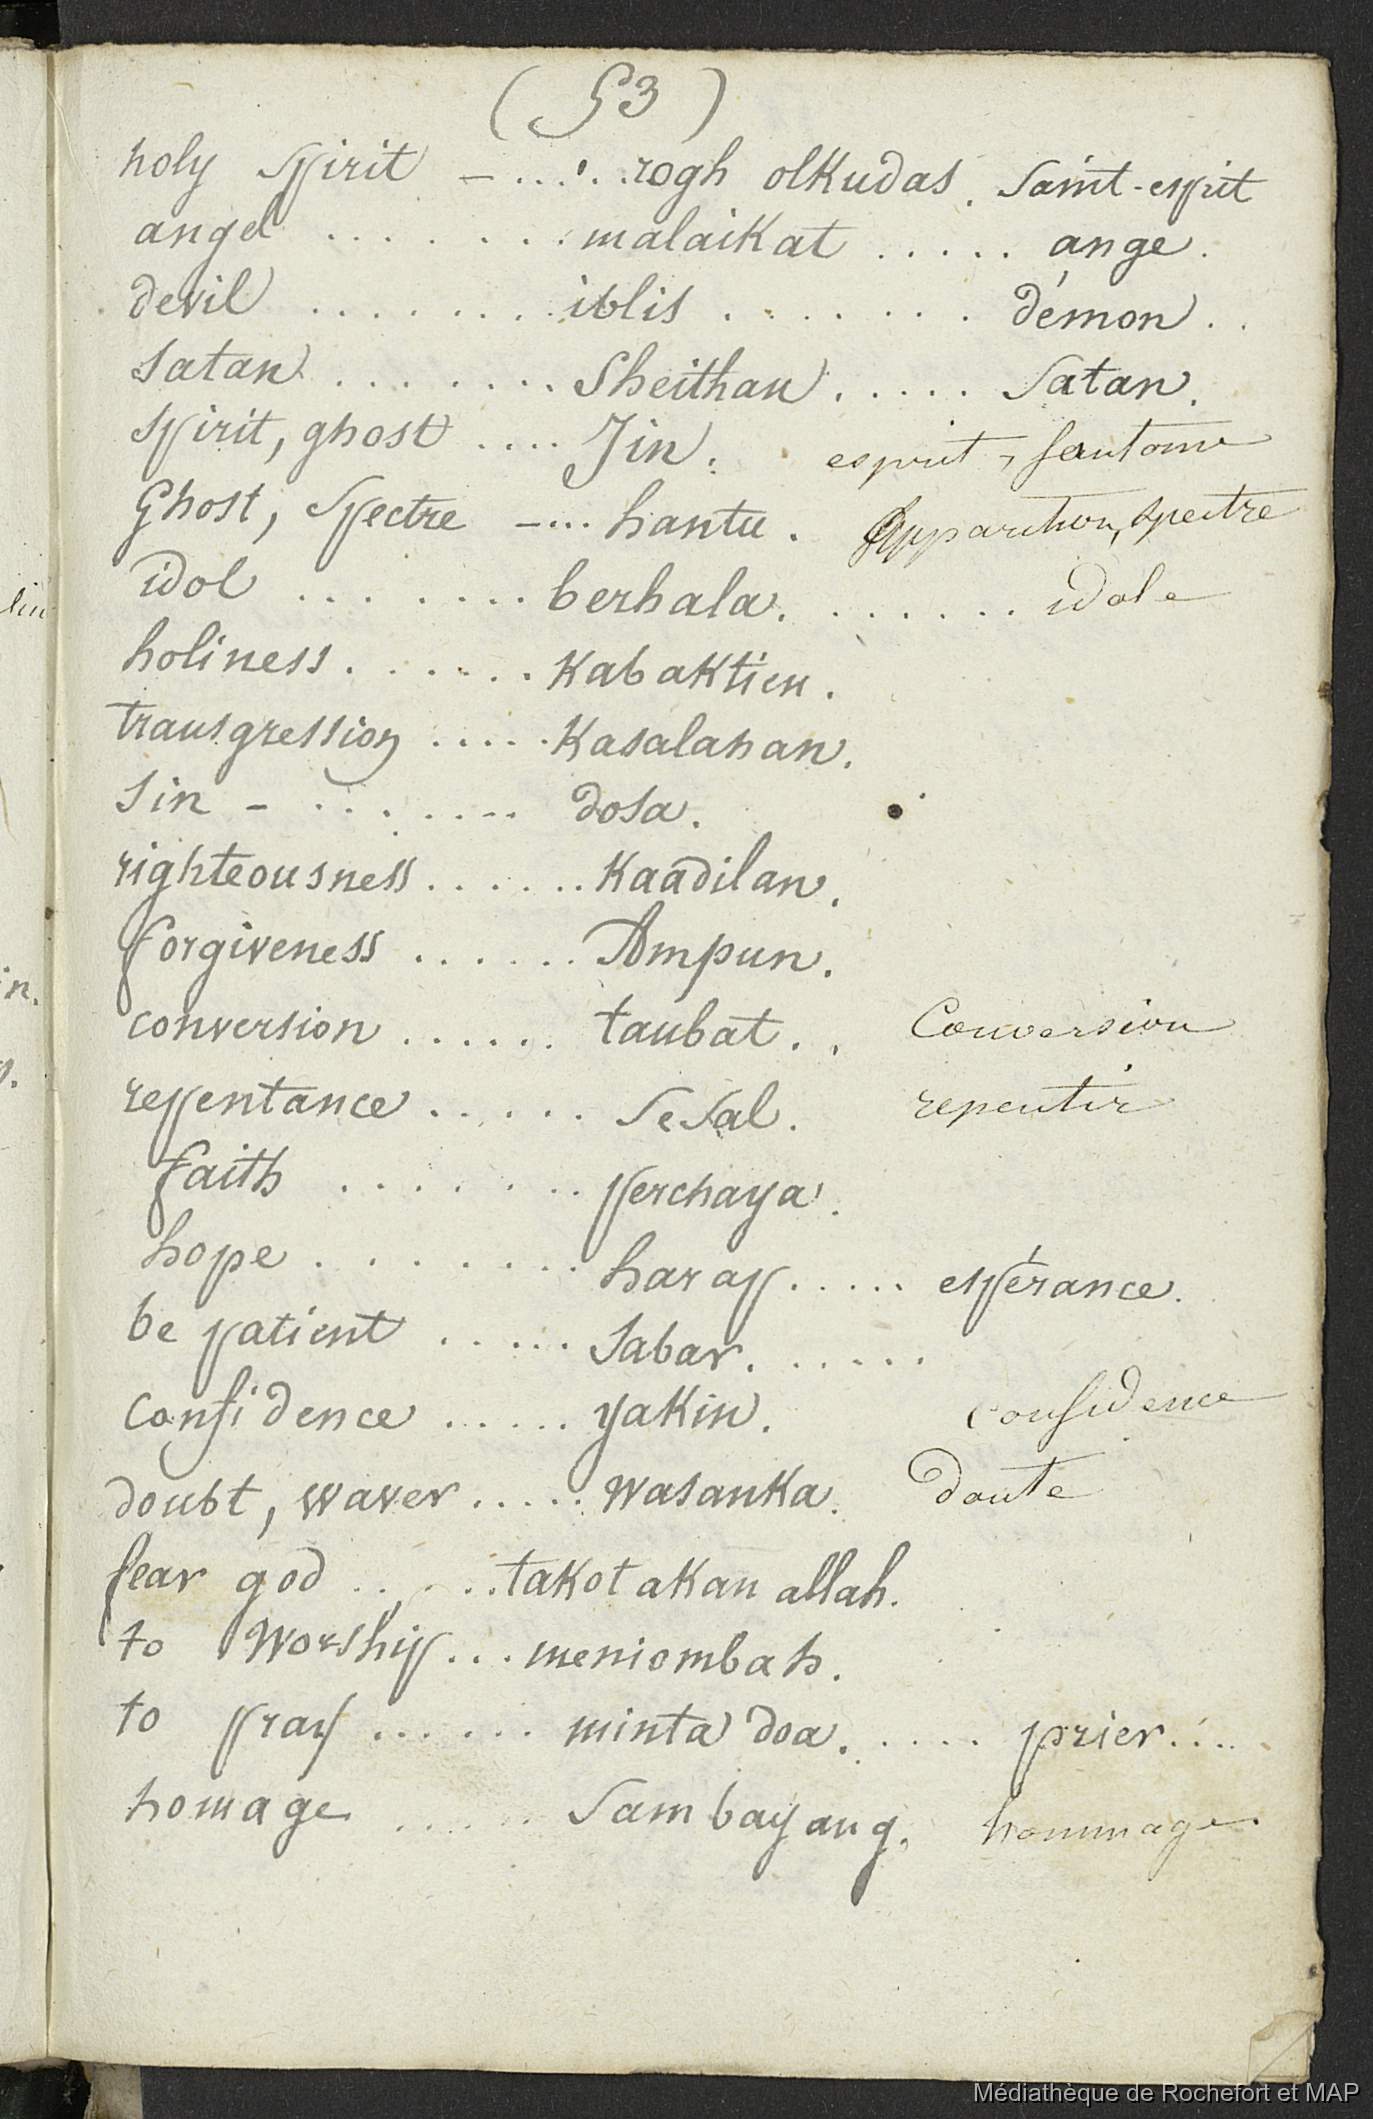 (53)
holy spirit - ...... rogh olkudas. saint-esprit
angel ....... malaikat ..... ange.
devil ........ iblis ........ démon..
satan ........ Sheithan ..... Satan.
spirit, ghost .... Jin. esprit, fantome
Ghost, Spectre -... hantu. Apparition, spectre
idol ........ berhala. ....... idole
holiness ...... Kabaktien.
transgression ..... Kasalahan.
sin - ....... dosa.
righteousness ...... Kaadilan.
forgiveness ...... Ampun.
conversion ...... taubat.. Conversion
repentance ..... Sesal. repentir
faith ....... perchaya.
hope ....... harap ..... espérance.
be patient ..... Sabar. .....
confidence ..... yakin. confidence
doubt, waver ..... wasanka. doute
fear god ..... takot akan allah.
to worship ... meniombah.
to pray ...... minta doa. .... prier....
homage ..... Sambayang. hommage
lin
in.
Médiathèque de Rochefort et MAP